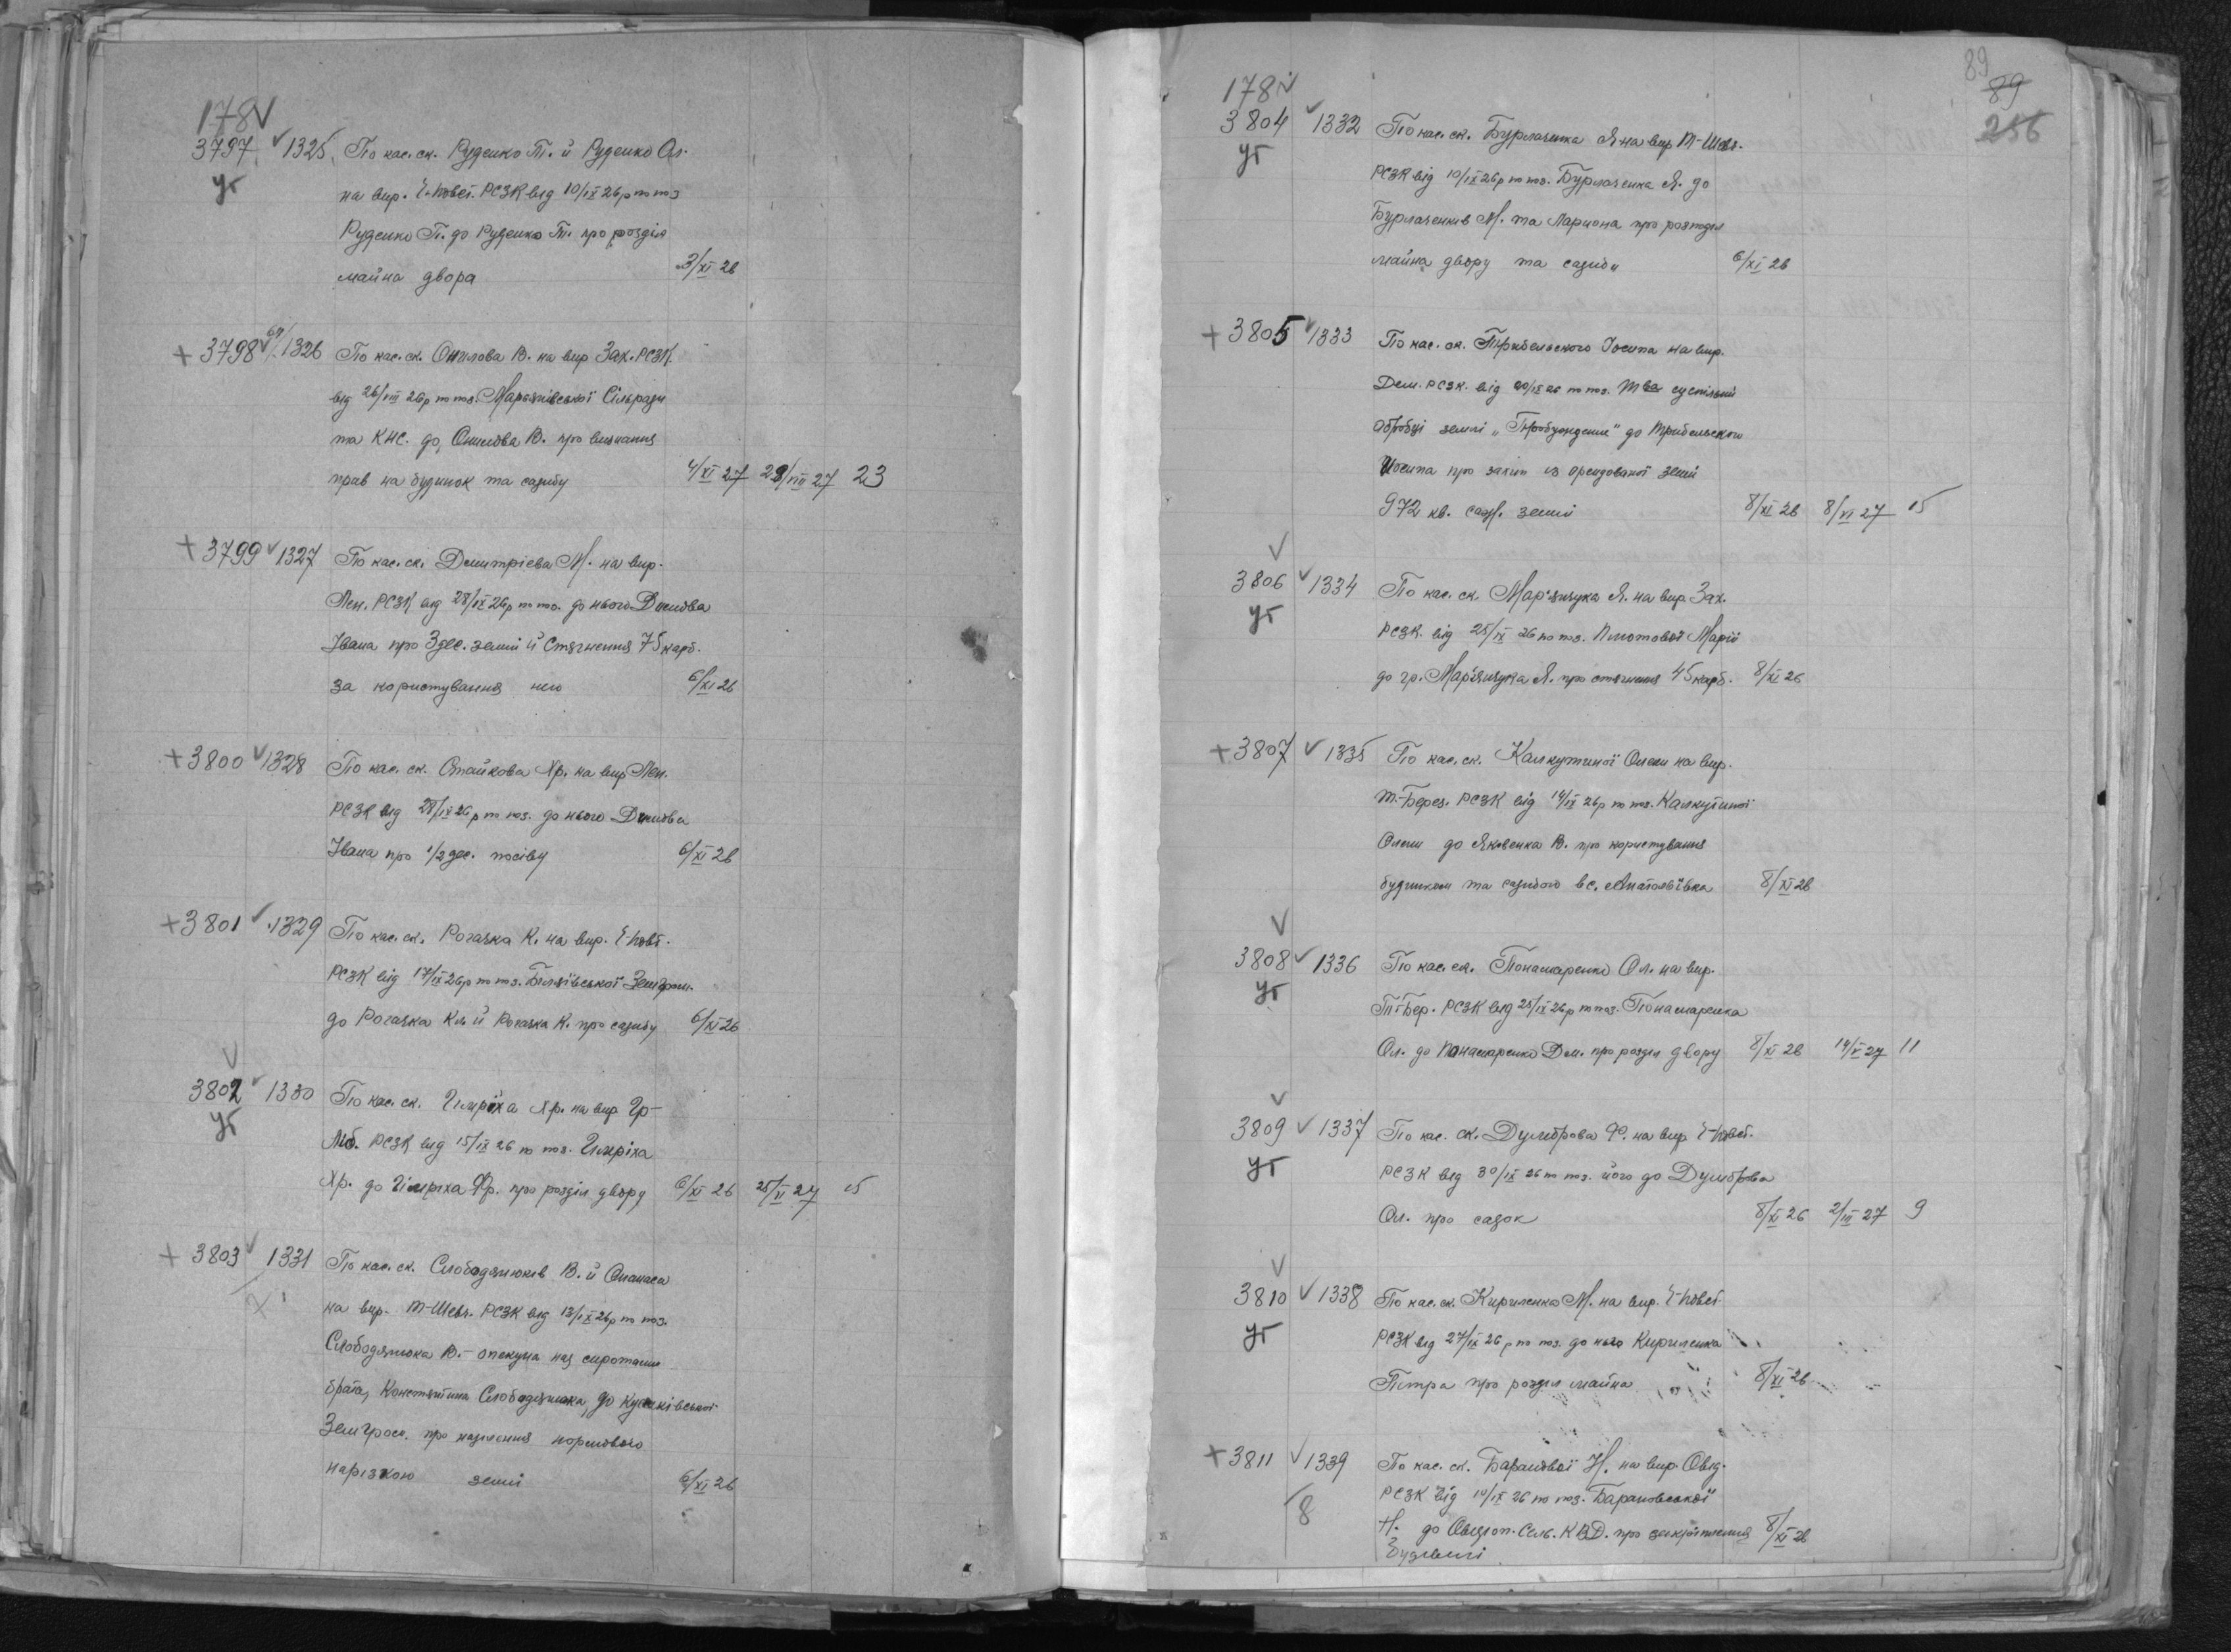 178 V
3797 ✓ 1325 По кас. ск. Руденко Т. й Руденко Ол.
ут на вир. Є-Повст. РСЗК від 10/IX 26р по поз
Руденко П. до Руденко Т. про розділ
майна двора 3/XI 26
+ 3798 ✓ 1326 По кас. ск. Онилова В. на вир Зах. РСЗК.
від 26/VIII 26р по поз. Мар'янівської Сільради
та КНС. до Онилова В. про визнання
прав на будинок та садибу 4/XI 27 29/VII 27 23
+ 3799 ✓ 1327 По кас. ск. Демитрієва М. на вир.
Лен. РСЗК від 28/IX 26р по по. до нього
Івана про 3 дес. землі й стягнення 75 карб.
за користування нею 6/XI 26
+ 3800 ✓ 1328 По кас. ск. Стайкова Хр. на вир Лен.
РСЗК від 28/IX 26р по поз. до нього
Івана про 1/2 дес. посіву 6/XI 26
+ 3801 ✓ 1329 По кас. ск. Рогачка К. на вир. Є-Повст.
РСЗК від 17/IX 26р по поз. Біляївської Земгром.
до Рогачка Кл. й Рогачка К. про садибу 6/XI 26
V
3802 ✓ 1330 По кас. ск. Гімріха Хр. на вир Гр-
ут Либ. РСЗК від 15/IX 26 по поз. Гімріха
Хр. до Гімріха Фр. про розділ двору 6/XI 26 25/VI 27 15
+ 3803 ✓ 1331 По кас. ск. Слободянюків В. й Опанаса
на вир. Т-Шевч. РСЗК від 13/IX 26р по поз.
Слободянюка В. - опекуна над сиротами
брата, Константина Слободянюка, до
Земгром. про наділення нормового
нарізкою землі 6/XI 26
89
89
256
178 V
3804 ✓ 1332 По кас. ск. Бурлаченка Я на вир Т-Шевч.
ут РСЗК від 10/IX 26р по поз. Бурлаченка Я. до
Бурлаченків М. та Лариона про розподіл
майна двору та садиби 6/XI 26
+ 3805 ✓ 1333 По кас. ск. Трибельского Іосипа на вир.
Дем. РСЗК. від 20/IX 26 по поз. Т-ва суспільній
обробці землі „Пробуждение" до Трибельского
Йосипа про захип із арендованої землі
972 кв. саж. землі 8/XI 26 8/VI 27 15
V
3806 ✓ 1334 По кас. ск. Мар'янчука Я. на вир Зах.
ут РСЗК. від 25/IX 26 по поз. Плотової Марії
до гр. Мар'янчука Я. про стягнення 45 карб. 8/XI 26
+ 3807 ✓ 1335 По кас. ск. Калкутиної Олени на вир.
Т.-Берез. РСЗК від 14/IX 26р по поз. Калкутиної
Олени до Яковенка В. про користування
будинком та садибою в с. Анатоліївка 8/XI 26
V
3808 ✓ 1336 По кас. ск. Понамаренко Ол. на вир.
ут Т-Бер. РСЗК від 25/IX 26р по поз. Понамаренка
Ол. до Понамаренко Дем. про розділ двору 8/XI 26 14/V 27 11
V
3809 ✓ 1337 По кас. ск. Думброва Ф. на вир Є-Повст.
ут РСЗК від 30/IX 26 по поз. його до Думброва
Ол. про садок 8/XI 26 2/III 27 9
V
3810 ✓ 1338 По кас. ск. Кириленка М. на вир. Є-Повст.
ут РСЗК від 27/IX 26р по поз. до нього Кириленка
Петра про розділ майна 8/XI 26
+ 3811 ✓ 1339 По кас. ск. Баранової Н. на вир. Овід.
8 РСЗК від 10/IX 26 по поз. Барановської
Н. до Овідіоп. Сель. КВД. про закріплення 8/XI 26
Будівлі